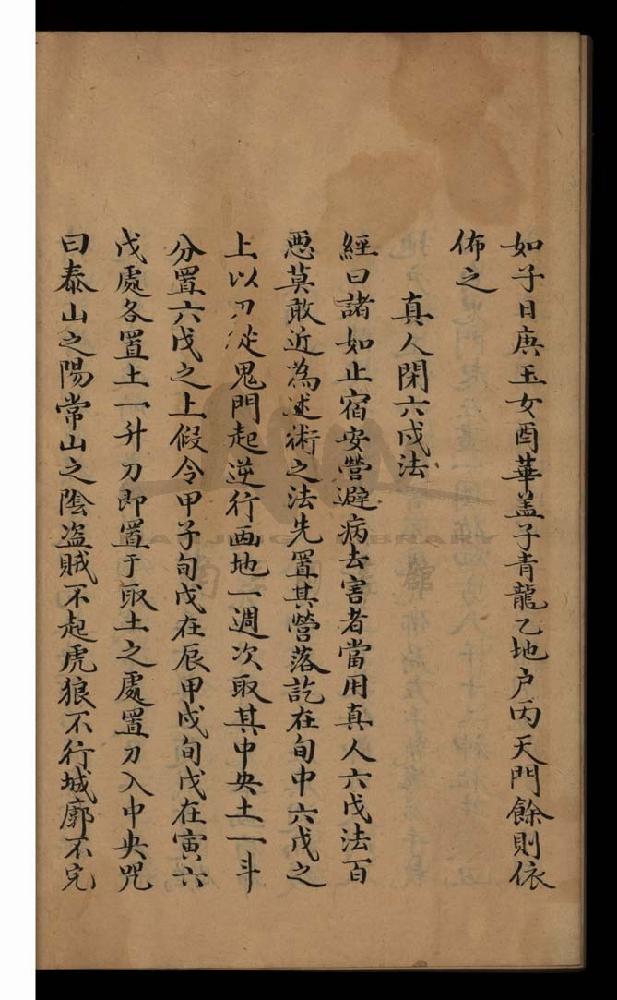 如子日庚玉女酉華盖子青龍乙地户丙天門餘則依
佈之
真人閉六戊法
經曰諸如止宿安營避病去害者當用真人六戊法百
惡莫敢近為述術之法先置其營落訖在旬中六戊之
上以刀從鬼門起逆行畫地一週次取其中央土一斗
分置六戊之上假令甲子旬戊在辰甲戌旬戊在寅六
戊處各置土一升刀即置于取土之處置刀入中央咒
曰泰山之陽常山之陰盗賊不起虎狼不行城廓不完